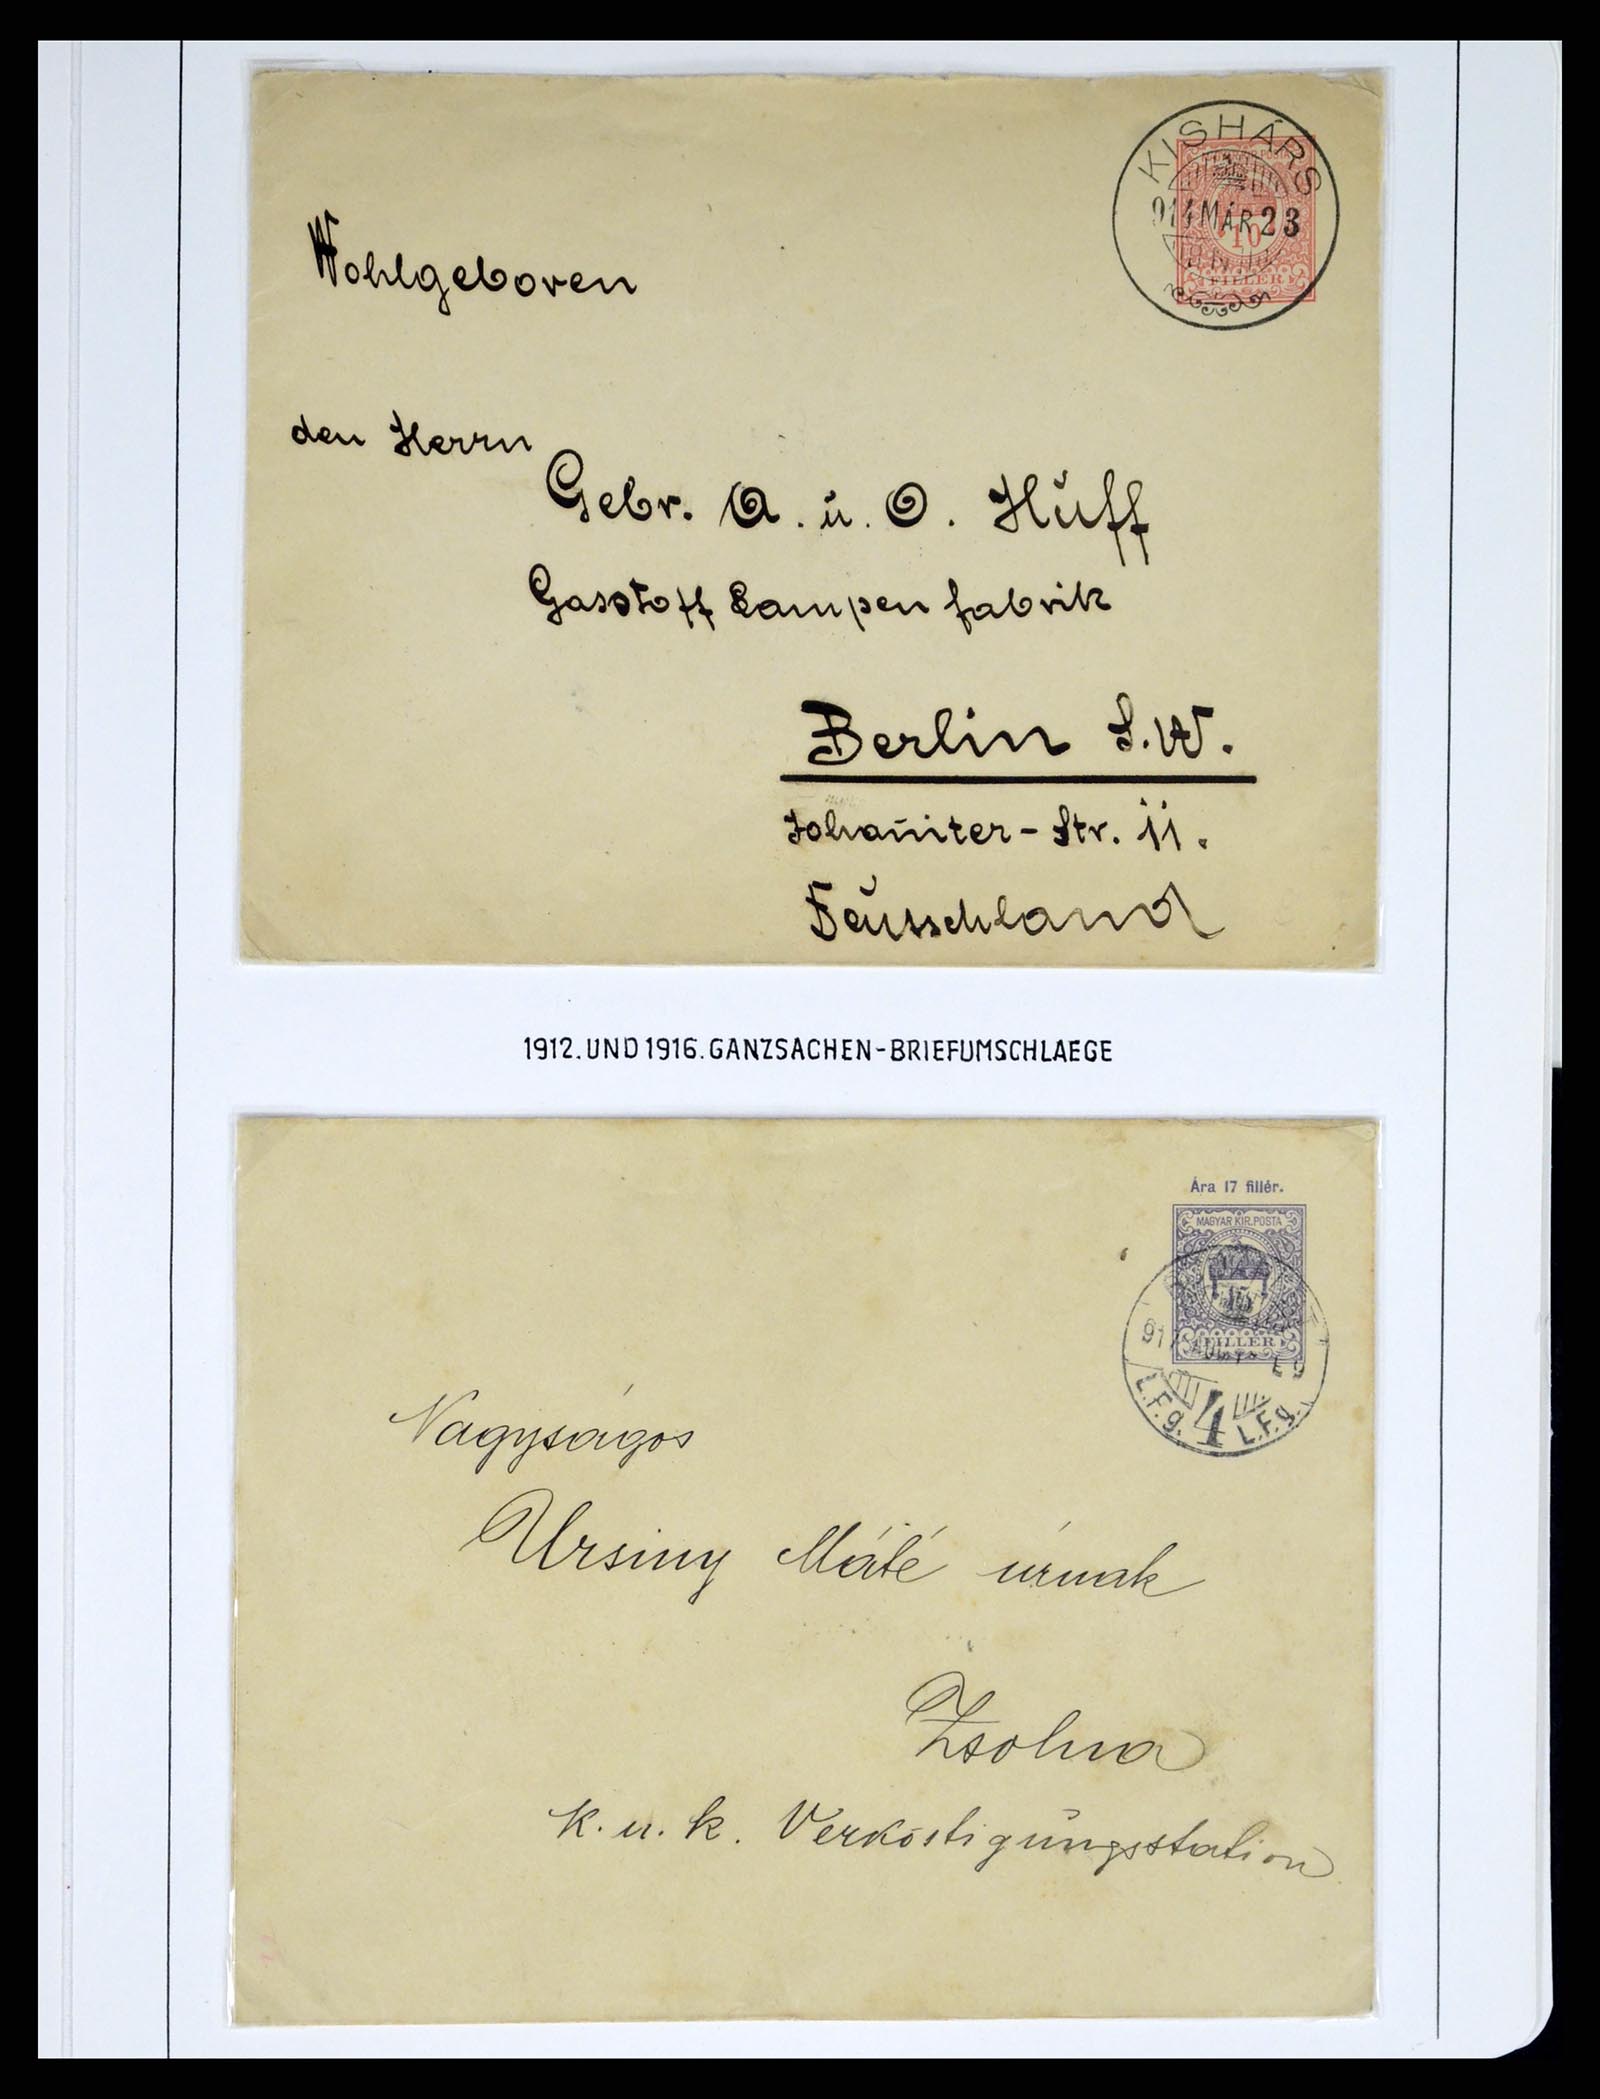 KISHÁRS
914 MÁR 23
10
FILLÉR
Wohlgeboren
den Herrn
Gebr. A. u. O. Huff
Gasstoff Lampen fabrik
Berlin S.W.
Johaniter-Str. 11.
Deutschland
1912. UND 1916. GANZSACHEN-BRIEFUMSCHLAEGE
Ára 17 fillér.
MAGYAR KIR. POSTA
15
FILLÉR
L.F.g. 4 L.F.g.
Nagyságos
Ursiny Máté úrnak
Zsolna
k. u. k. Verköstigungsstation